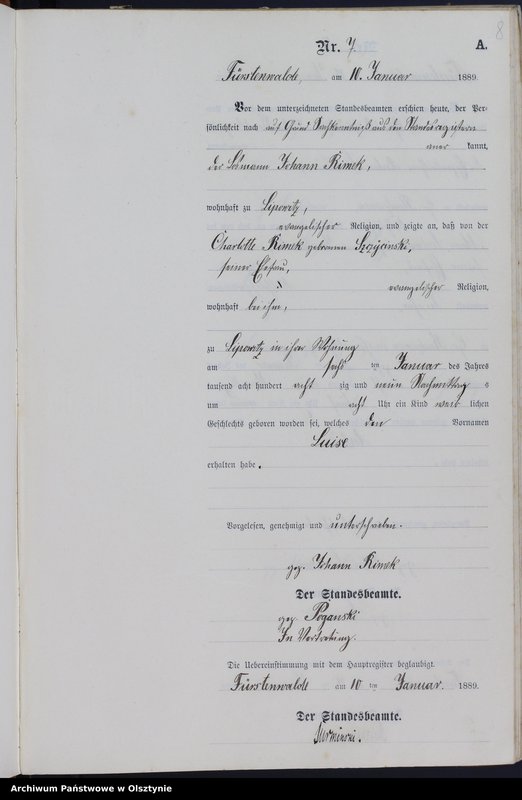 8
Nr. 7. A.
Fürstenwalde, am 10. Januar 1889.
Vor dem unterzeichneten Standesbeamten erschien heute, der Per-
sönlichkeit nach auf Grund Sachkenntniß aus den Standsregistern
aner kannt,
der Losmann Johann Rimek,
wohnhaft zu Lipowitz,
evangelischer Religion, und zeigte an, daß von der
Charlotte Rimek geborenen
seiner Ehefrau,
evangelischer Religion,
wohnhaft bei ihm,
zu Lipowitz in ihrer Wohnung
am sechs ten Januar des Jahres
tausend acht hundert acht zig und neun Nachmittag s
um acht Uhr ein Kind weib lichen
Geschlechts geboren worden sei, welches den Vornamen
Luise
erhalten habe.
Vorgelesen, genehmigt und unterschrieben.
gez. Johann Rimek
Der Standesbeamte.
gez. Poganski
In Vertretung.
Die Uebereinstimmung mit dem Hauptregister beglaubigt.
Fürstenwalde am 10 ten Januar. 1889.
Der Standesbeamte.
Archiwum Państwowe w Olsztynie